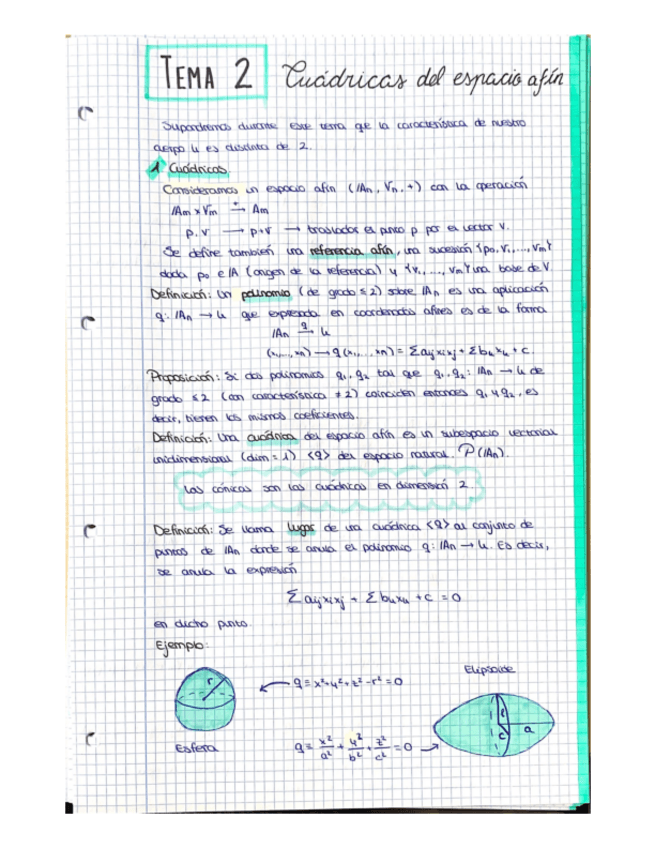 TEMA 2 Cuádricas del espacio afín
Supondremos durante este tema que la característica de nuestro
cuerpo k es distinta de 2.
1 Cuádricas
Consideramos un espacio afín (/An, Vn, +) con la operación
/Am x Vm +→ Am
p, v → p+v → trasladar el punto p por el vector v.
Se define también una referencia afín, una sucesión {p0, v1, ..., vm}
dada p0 ∈ /A (origen de la referencia) y {v1, ..., vm} una base de V.
Definición: Un polinomio (de grado ≤ 2) sobre /An es una aplicación
q: /An → k que expresada en coordenadas afines es de la forma
/An q→ k
(x1,...,xn) → q(x1,...,xn) = Σaijxixj + Σbkxk + c.
Proposición: Si dos polinomios q1, q2 tal que q1, q2: /An → k de
grado ≤2 (con característica ≠ 2) coinciden entonces q1 y q2, es
decir, tienen los mismos coeficientes.
Definición: Una cuádrica del espacio afín es un subespacio vectorial
unidimensional (dim = 1) <q> del espacio natural P(/An).
Las cónicas son las cuádricas en dimensión 2
Definición: Se llama lugar de una cuádrica <q> al conjunto de
puntos de /An donde se anula el polinomio q: /An → k. Es decir,
se anula la expresión
Σaijxixj + Σbkxk + c = 0
en dicho punto.
Ejemplo:
Elipsoide
r
q ≡ x²+y²+z²-r² = 0
a
c
Esfera
q ≡ x²/a² + y²/b² + z²/c² = 0